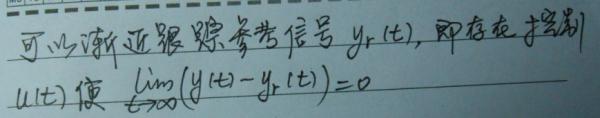 可以渐近跟踪参考信号 yᵣ(t), 即存在控制
u(t) 使 lim_{t→∞}(y(t)-yᵣ(t))=0